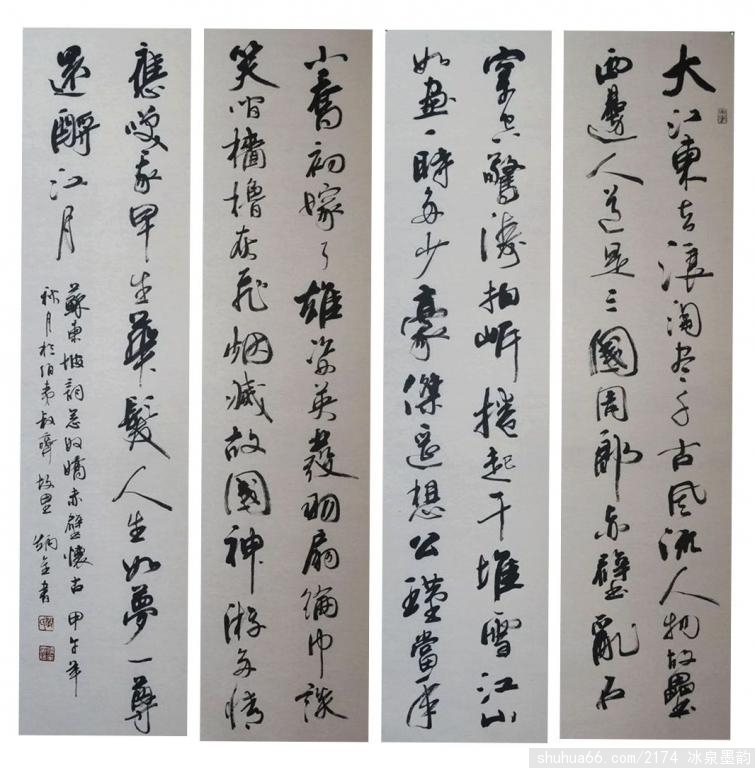 大江東去浪淘尽千古風流人物故壘
西邊人道是三國周郎赤壁亂石
穿空驚濤拍岸捲起千堆雪江山
如畫一時多少豪傑遙想公瑾當年
小喬初嫁了雄姿英發羽扇綸巾談
笑間檣櫓灰飛烟滅故國神游多情
應笑我早生華髮人生如夢一尊
還酹江月
蘇東坡詞念奴嬌赤壁懷古 甲午年
秋月於伯夷叔齊故里 金書
shuhua66.com/2174 冰泉墨韵